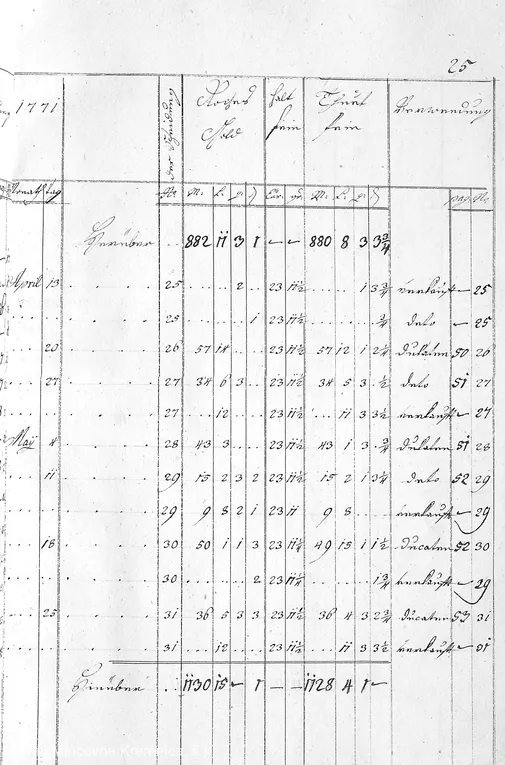 25
1771
der Scheidung
Rohes Gold
Halt fein
Thut fein
Verwendung
Monath Tag
No. M. L. q. d Car. gr. M. L. q. d pag. No.
Herüber . . 882 11 3 1 — — 880 8 3 3 3/4
April 13 25 2 23 11 1/2 1 3 3/4 verkauft — 25
25 1 23 11 1/2 3/4 deto — 25
20 26 57 14 23 11 1/2 57 12 1 2 1/4 Dukaten 50 26
27 27 34 6 3 23 11 1/2 34 5 3 1/2 deto 51 27
27 12 23 11 1/2 11 3 3 1/2 verkauft — 27
Maÿ 4 28 43 3 23 11 1/2 43 1 3 3/4 Dukaten 51 28
11 29 15 2 3 2 23 11 1/2 15 2 1 3 1/4 deto 52 29
29 9 8 2 1 23 11 9 8 verkauft — 29
18 30 50 1 1 3 23 11 1/4 49 15 1 1 1/2 Ducaten 52 30
30 2 23 11 1/4 1 3/4 verkauft — 29
25 31 36 5 3 3 23 11 1/2 36 4 3 2 3/4 Ducaten 53 31
31 12 23 11 1/2 11 3 3 1/2 verkauft — 31
Hinüber . . 1130 15 — 1 — — 1128 4 1 —